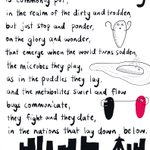 is commonly put,
in the realm of the dirty and trodden
but just stop and ponder,
on the glory and wonder,
that emerge when the world turns sodden
the microbes they play,
as in the puddles they lay.
and the metabolites swirl and flow
bugs communicate,
they fight and they date,
in the nations that lay down below.